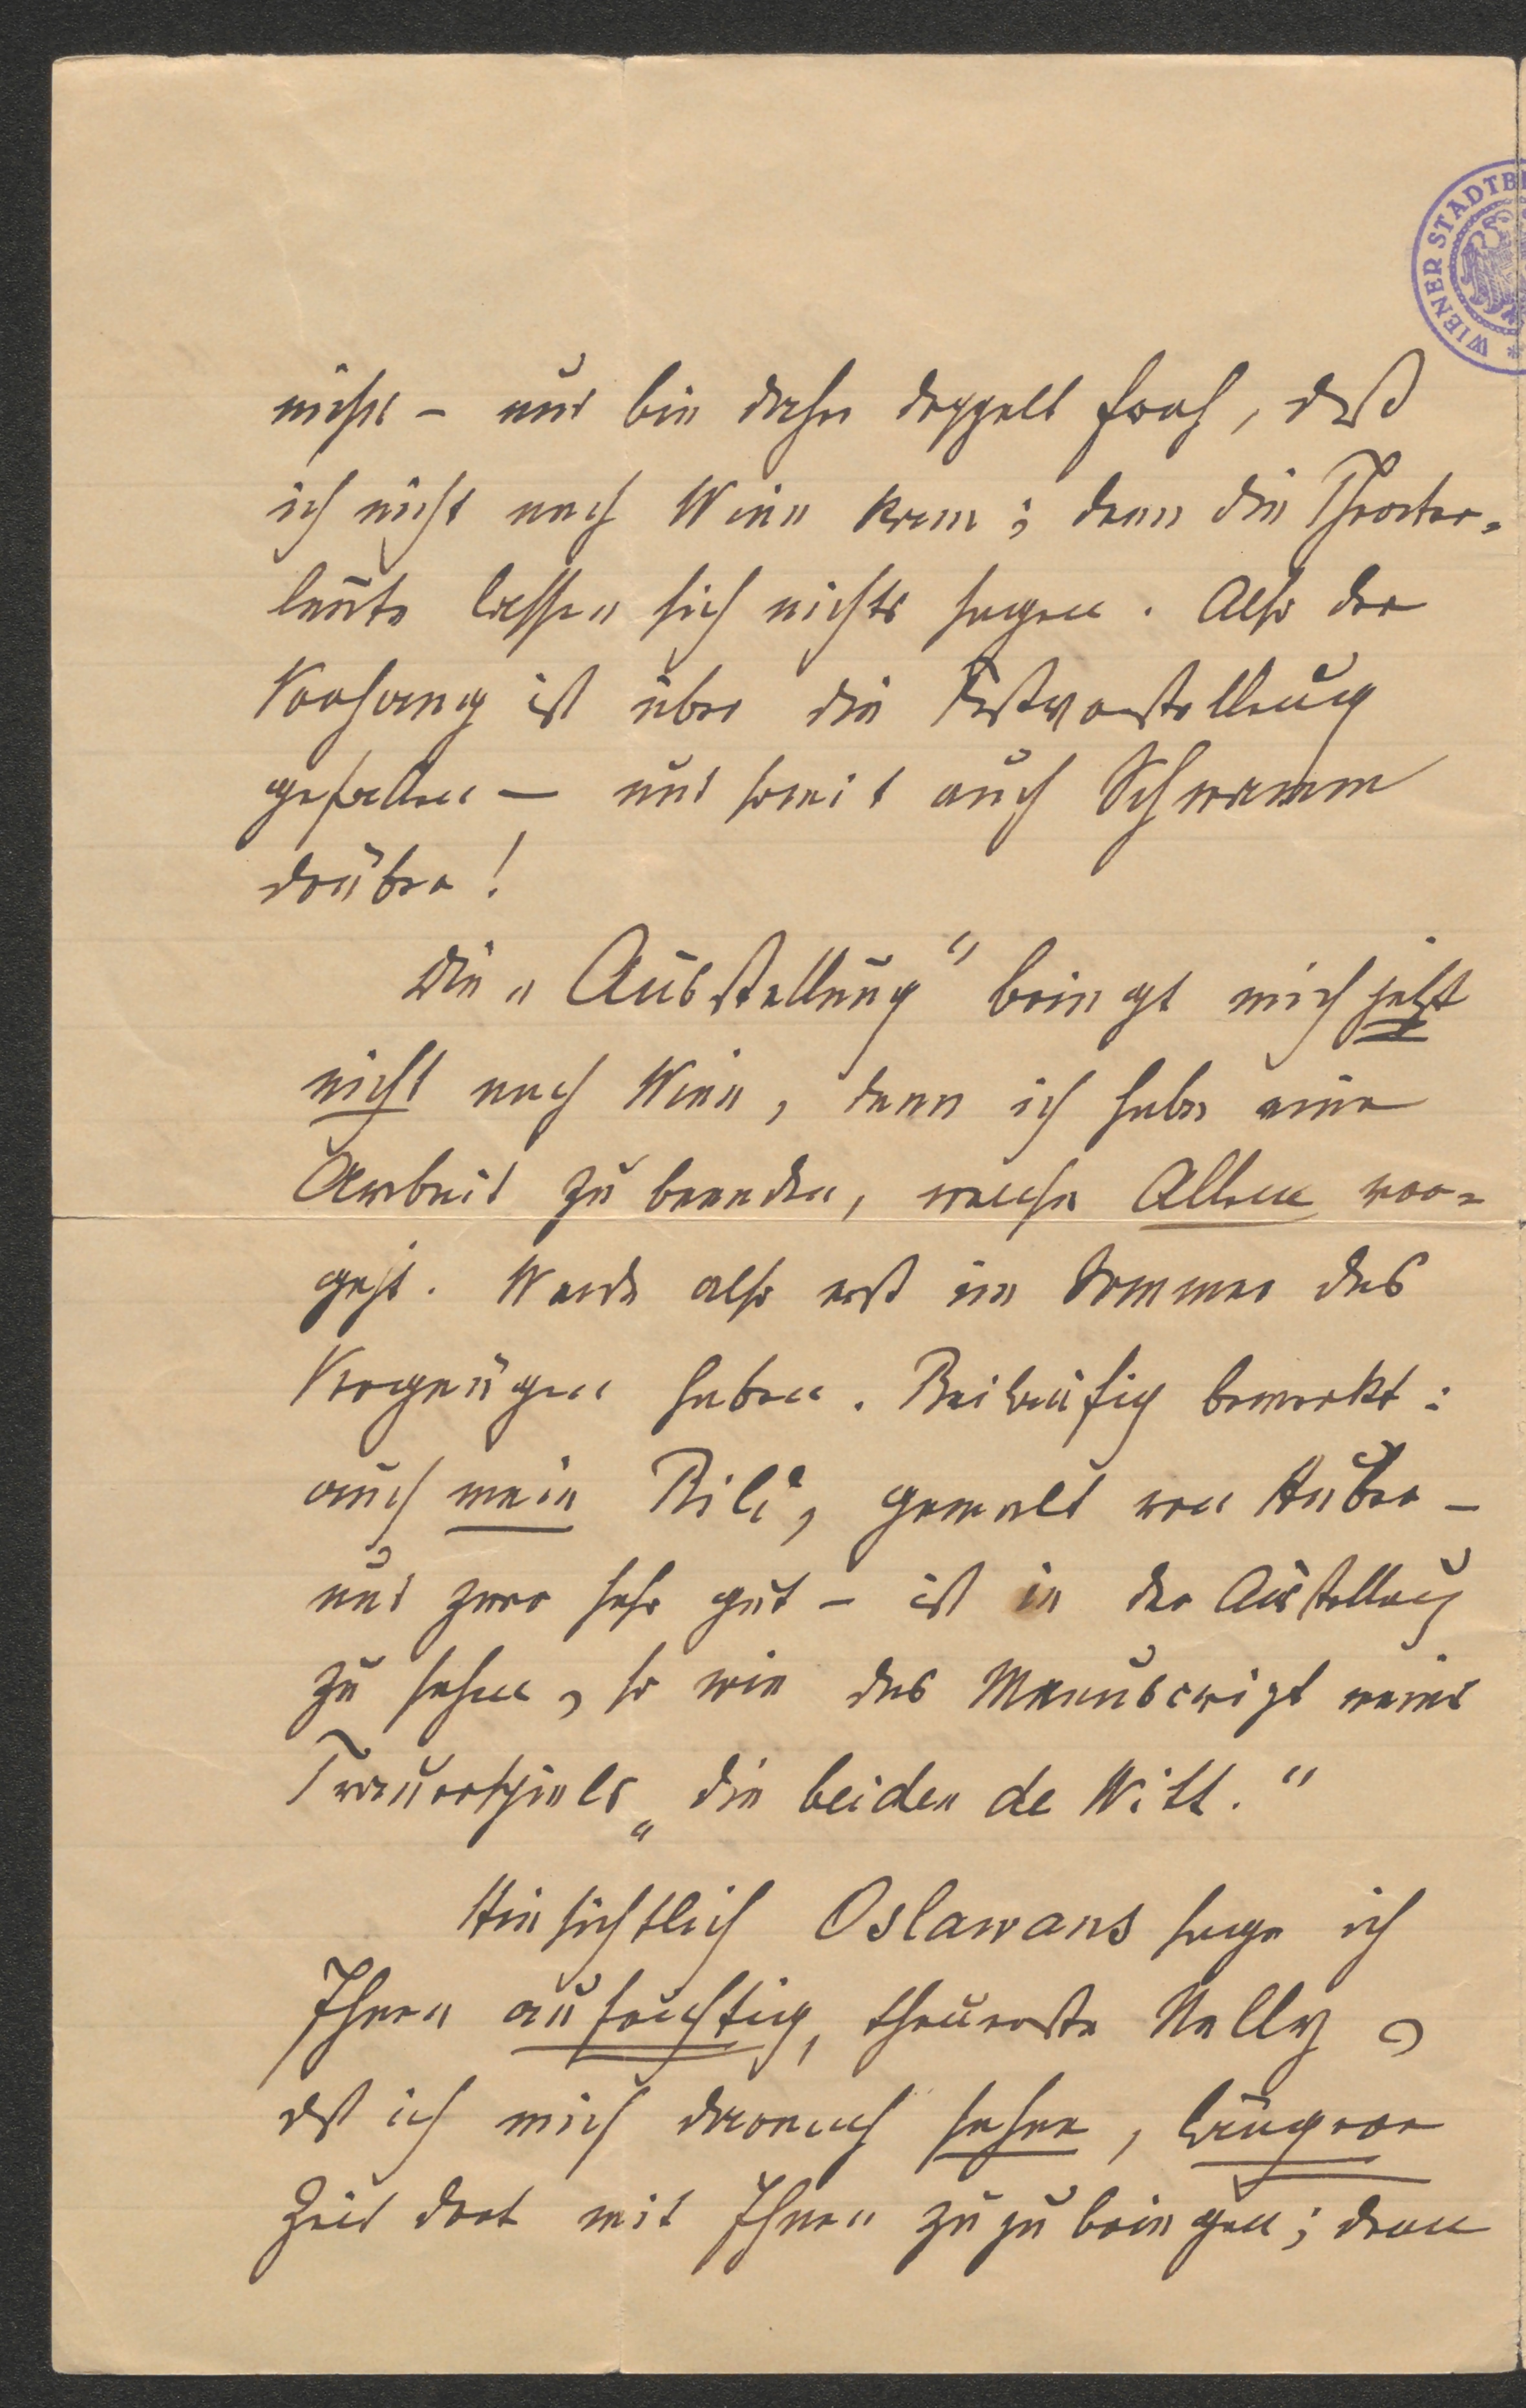 WIENER STADTB
nichts – und bin daher doppelt froh, daß
ich nicht nach Wien kam; denn die Theater-
leute lassen sich nichts sagen. Also der
Vorhang ist über die Festvorstellung
gefallen – und somit auch Schwamm
drüber!
Die „Ausstellung" bringt mich jetzt
nicht nach Wien, denn ich habe eine
Arbeit zu beenden, welche Allem vor-
geht. Werde also erst im Sommer das
Vergnügen haben. Beiläufig bemerkt:
auch mein Bild, gemalt von Huber –
und zwar sehr gut – ist in der Ausstellung
zu sehen, so wie das Manuscript meines
Trauerspiels „die beiden de Witt."
Hinsichtlich Oslawans sage ich
Ihnen aufrichtig, theuerste Nelly,
daß ich mich darnach sehne, längere
Zeit dort mit Ihnen zuzubringen; denn